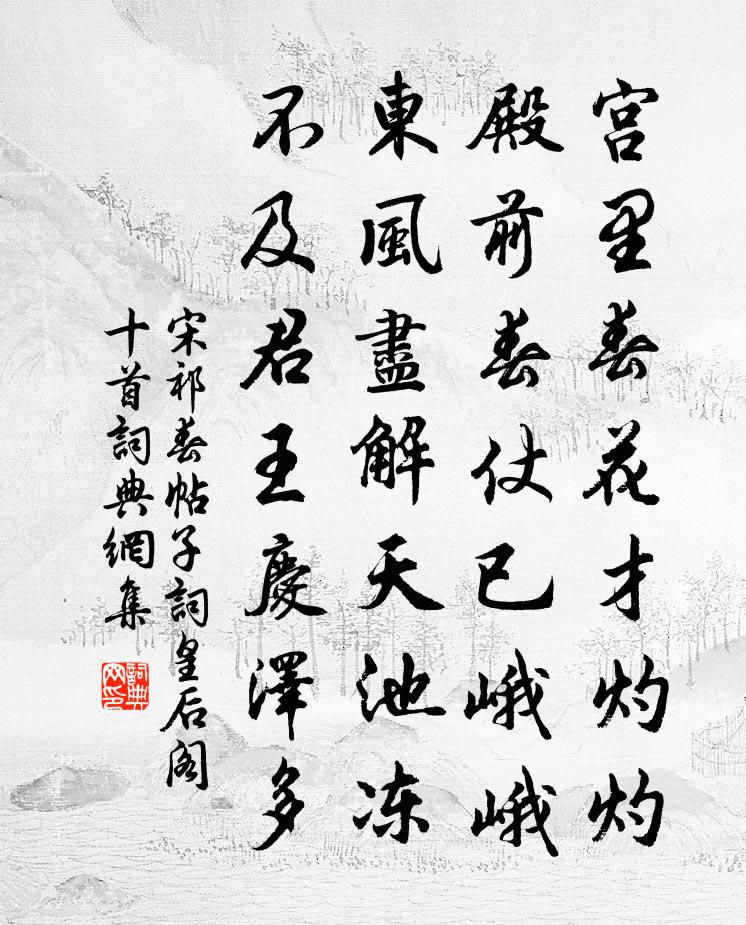 宫里春花才灼灼
殿前春仗已峨峨
東風盡解天池冻
不及君王慶澤多
宋祁春帖子詞皇后阁
十首詞典網集
詞典
网印